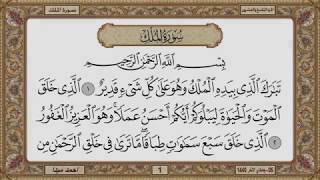 سورة الملك
سُورَةُ المُلْكِ
بِسْمِ اللَّهِ الرَّحْمَٰنِ الرَّحِيمِ
تَبَٰرَكَ الَّذِي بِيَدِهِ الْمُلْكُ وَهُوَ عَلَىٰ كُلِّ شَيْءٍ قَدِيرٌ ١ الَّذِي خَلَقَ
الْمَوْتَ وَالْحَيَوٰةَ لِيَبْلُوَكُمْ أَيُّكُمْ أَحْسَنُ عَمَلًا وَهُوَ الْعَزِيزُ الْغَفُورُ
٢ الَّذِي خَلَقَ سَبْعَ سَمَٰوَٰتٍ طِبَاقًا مَّا تَرَىٰ فِي خَلْقِ الرَّحْمَٰنِ مِن
1